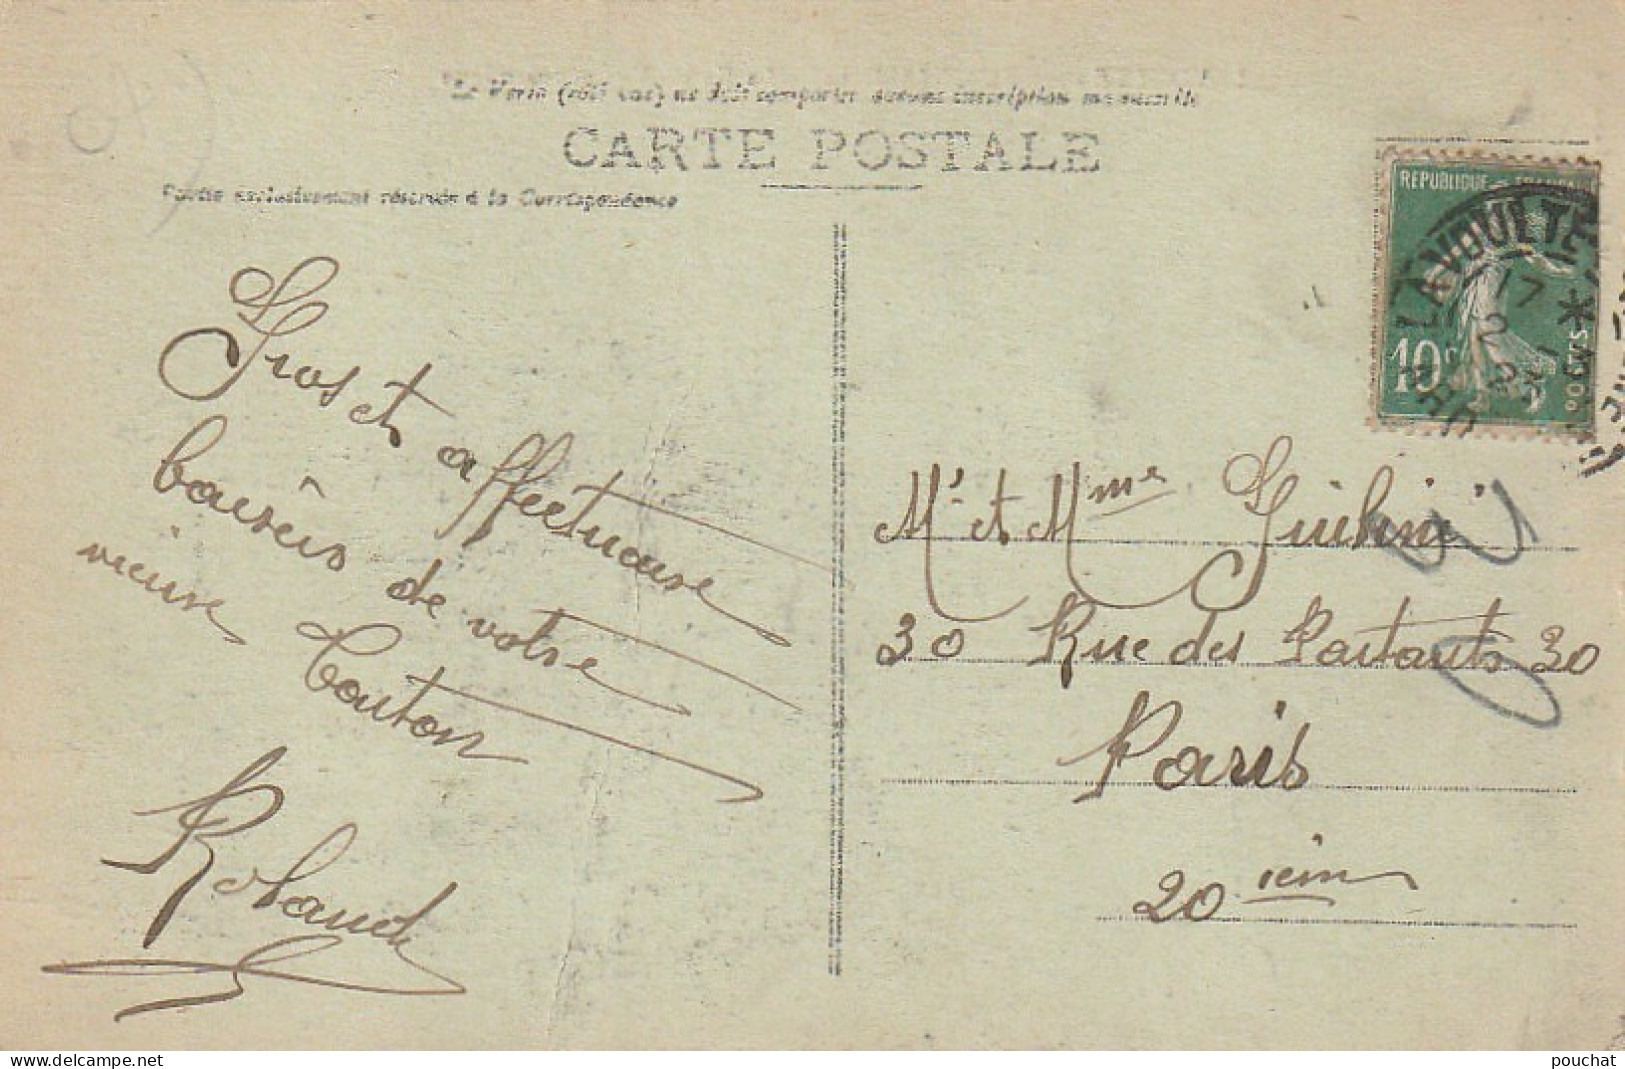 Le Verso (côté vue) ne doit comporter aucune inscription manuscrite
CARTE POSTALE
Partie exclusivement réservée à la Correspondance
Gros et affectueuse
baisers de votre
vieuse Touton
Rolande
RÉPUBLIQUE FRANÇAISE
10c
POSTES
LA VOULTE
17
Mr et Mme
30 Rue des Partants 30
Paris
20 ièm
www.delcampe.net
pouchat